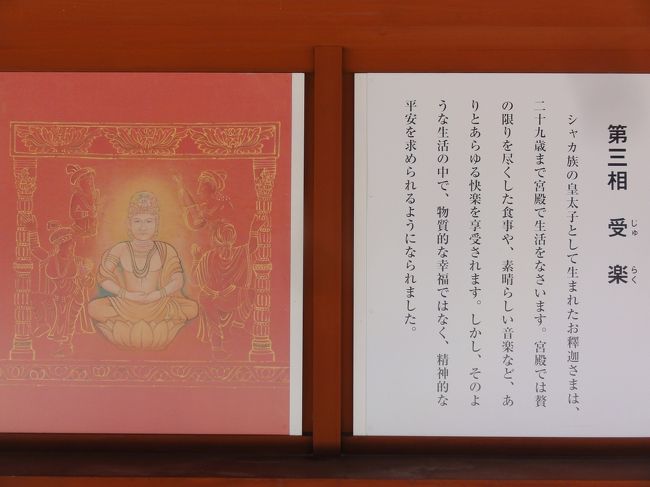 第三相　受楽
じゅ　らく
シャカ族の皇太子として生まれたお釋迦さまは、
二十九歳まで宮殿で生活をなさいます。宮殿では贅
の限りを尽くした食事や、素晴らしい音楽など、あ
りとあらゆる快楽を享受されます。しかし、そのよ
うな生活の中で、物質的な幸福ではなく、精神的な
平安を求められるようになられました。